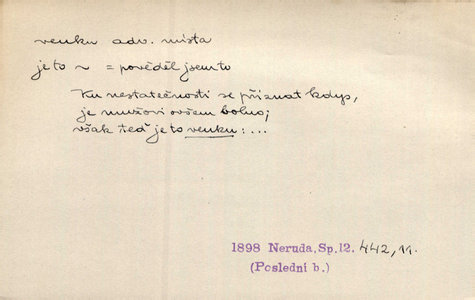 venku adv. místa
je to ~ = pověděl jsem to
Ku nestatečnosti se přiznat kdys,
je mužovi ovšem bolno;
však teď je to venku: ...
1898 Neruda, Sp. 12. 442, 11.
(Poslední b.)